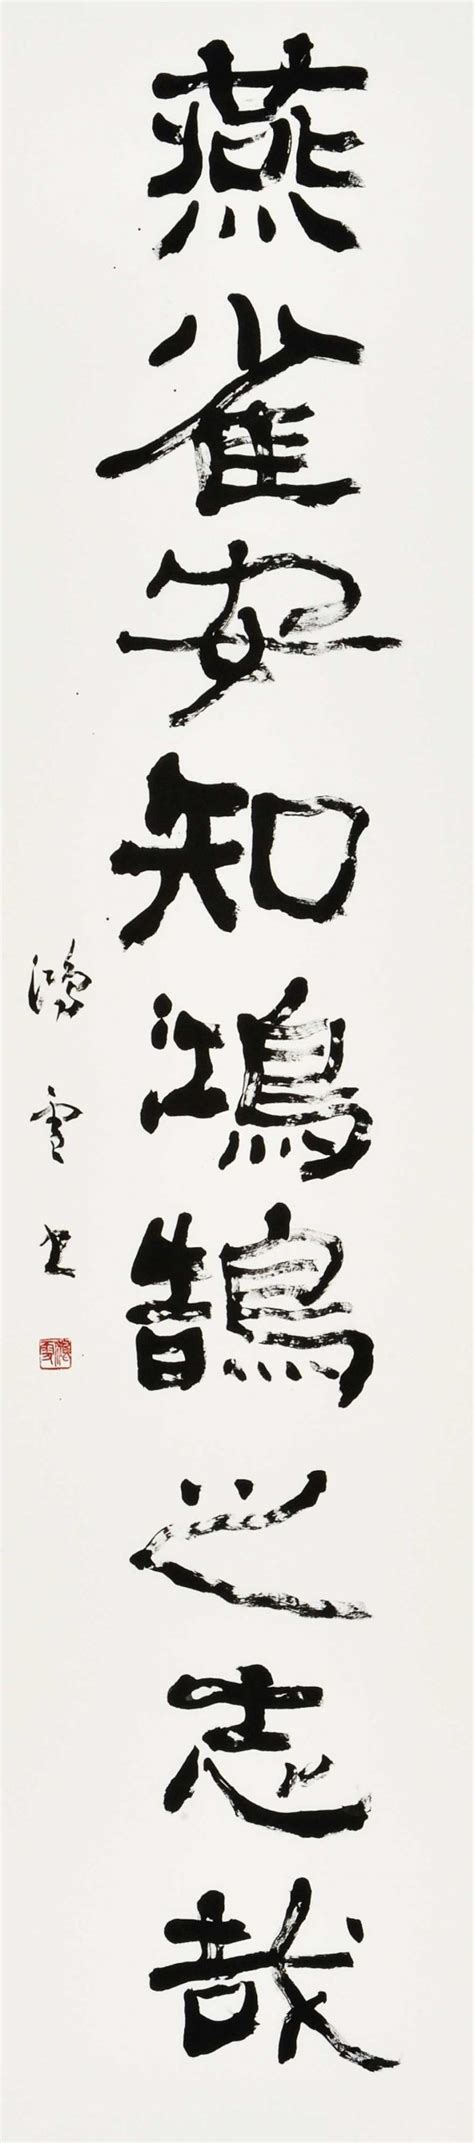 燕雀安知鴻鵠之志哉
鴻雪書
鴻雪